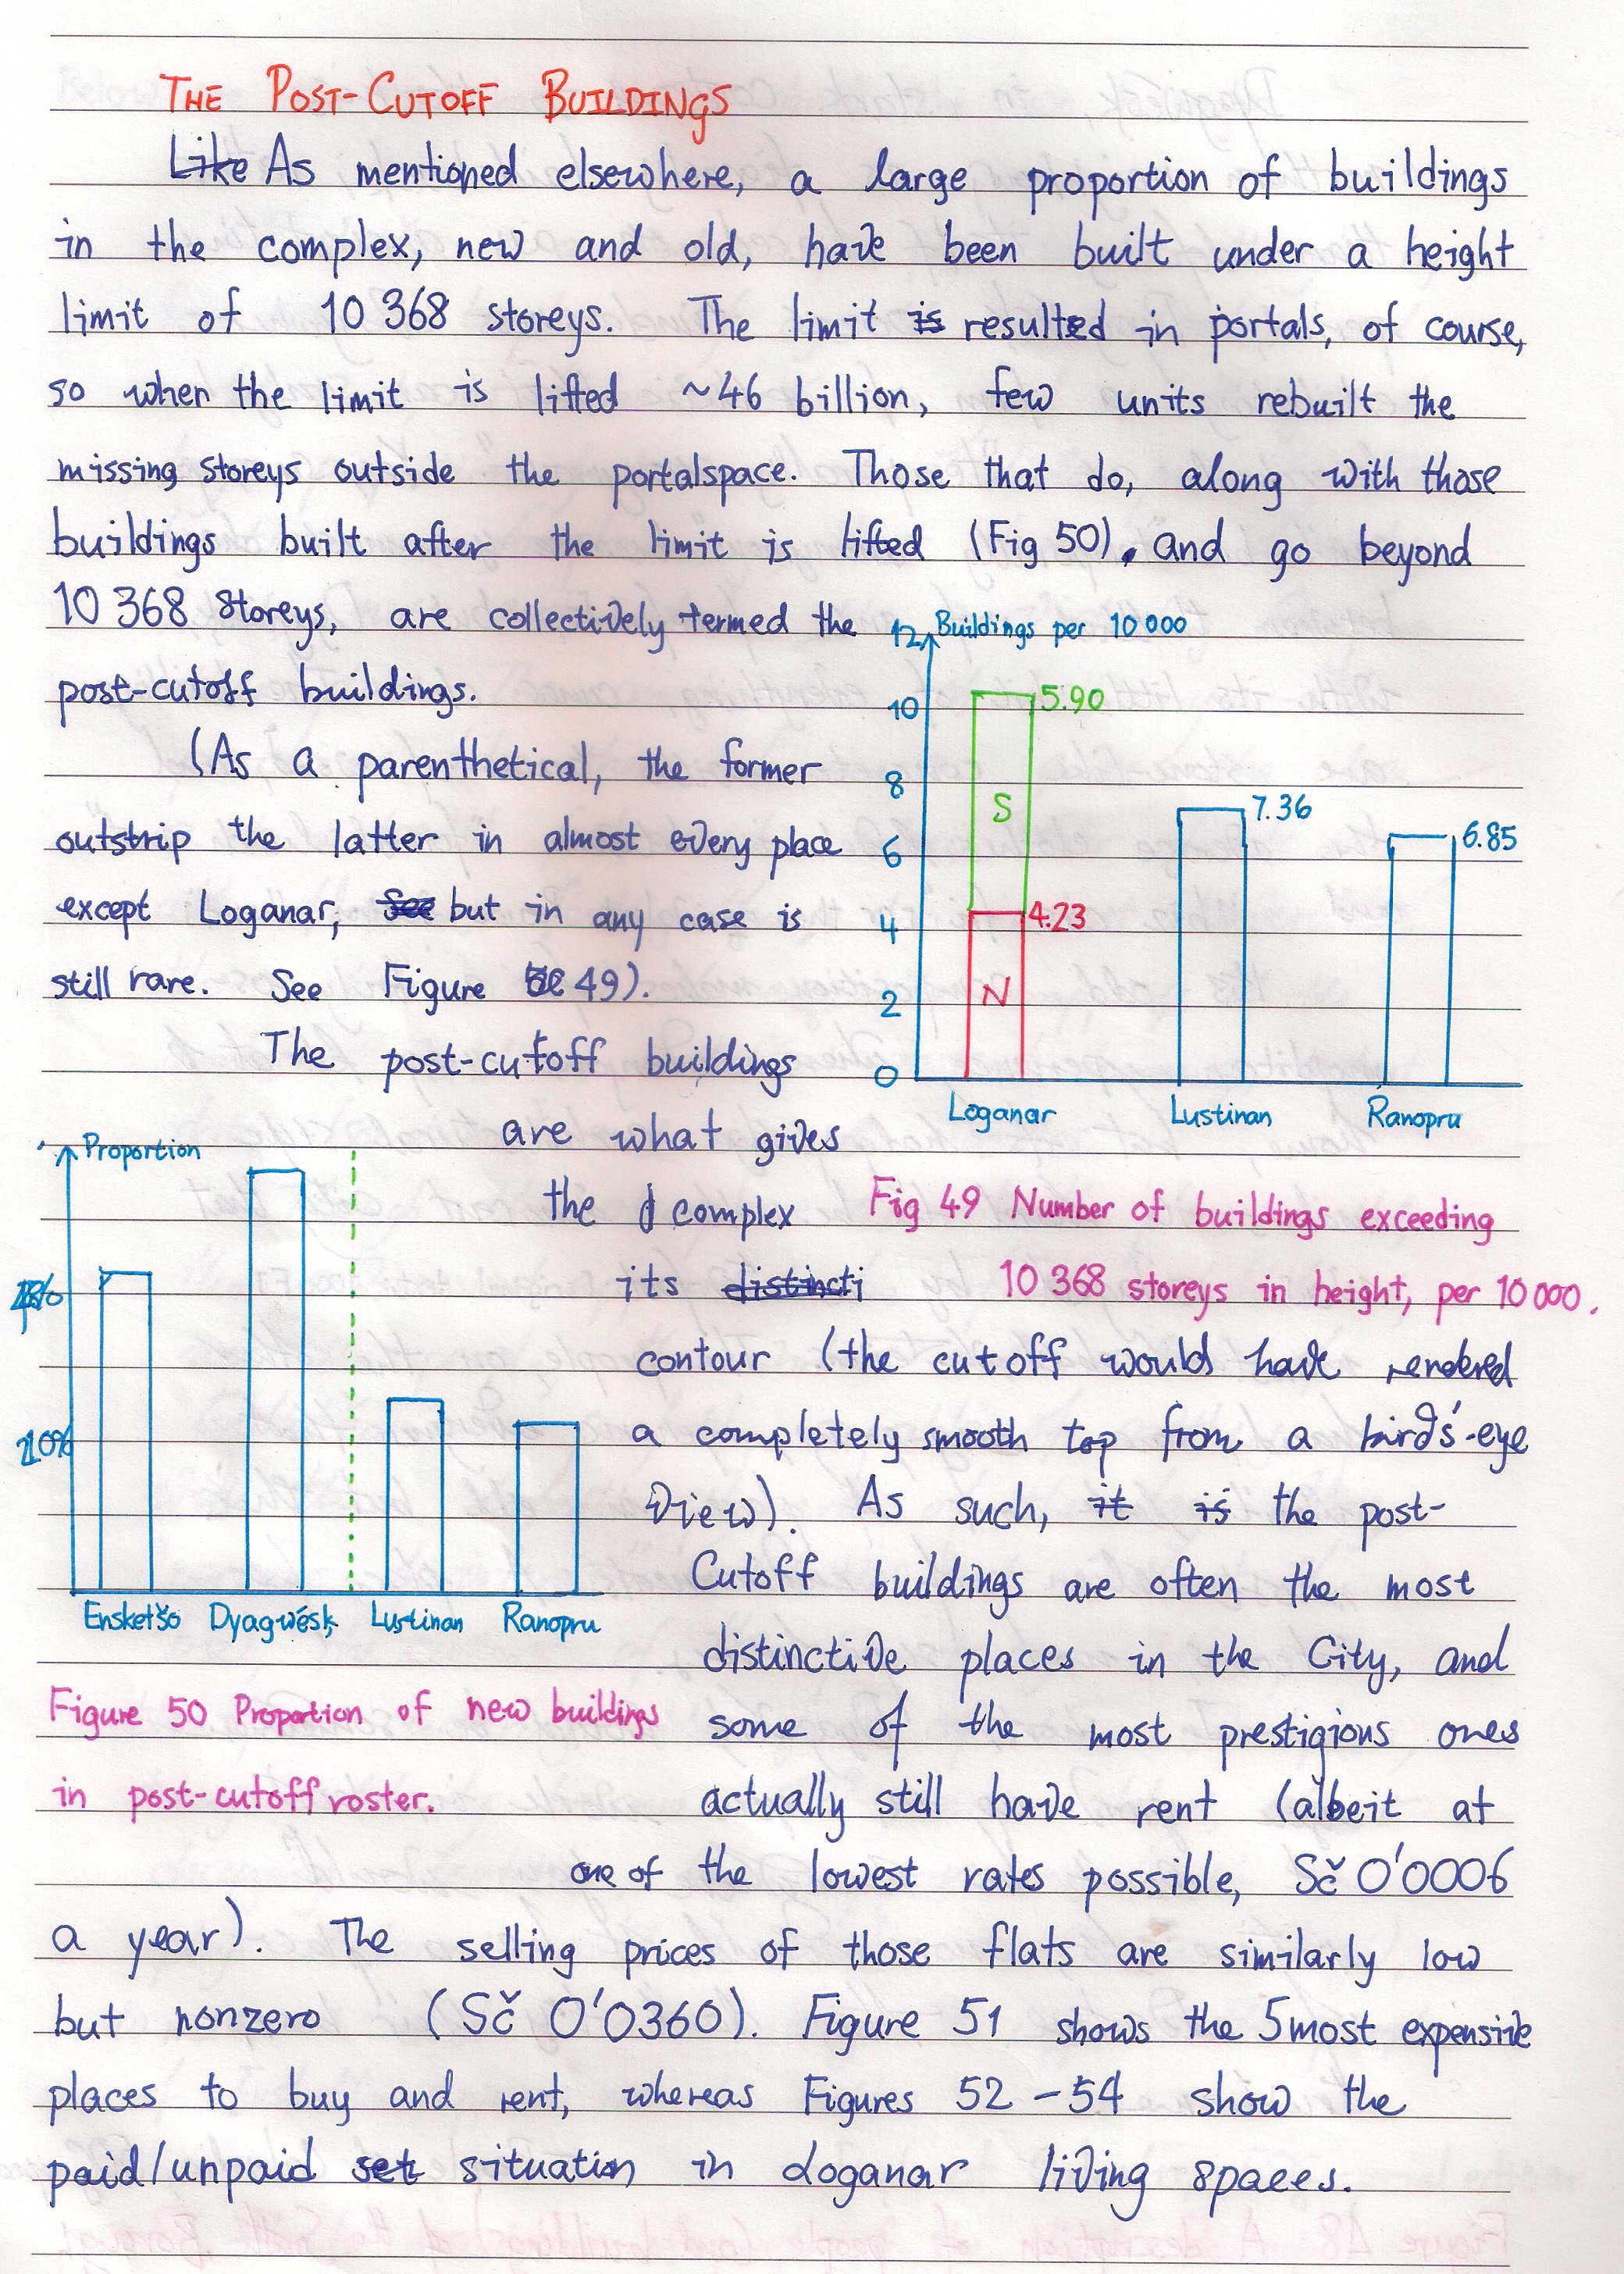 THE POST-CUTOFF BUILDINGS
Like As mentioned elsewhere, a large proportion of buildings
in the complex, new and old, have been built under a height
limit of 10 368 storeys. The limit is resulted in portals, of course,
so when the limit is lifted ~46 billion, few units rebuilt the
missing storeys outside the portalspace. Those that do, along with those
buildings built after the limit is lifted (Fig 50), and go beyond
10 368 storeys, are collectively termed the
post-cutoff buildings.
(As a parenthetical, the former
outstrip the latter in almost every place
except Loganar, See but in any case is
still rare. See Figure 49).
The post-cutoff buildings
are what gives
the complex
its distincti
contour (the cutoff would have rendered
a completely smooth top from a bird's-eye
view). As such, it is the post-
Cutoff buildings are often the most
distinctive places in the City, and
some of the most prestigious ones
actually still have rent (albeit at
one of the lowest rates possible, Sč 0'0006
a year). The selling prices of those flats are similarly low
but nonzero (Sč 0'0360). Figure 51 shows the 5 most expensive
places to buy and rent, whereas Figures 52 - 54 show the
paid/unpaid set situation in Loganar living spaces.
12 Buildings per 10 000
10
8
6
4
2
0
5.90
S
4.23
N
7.36
6.85
Loganar Lustinan Ranopru
Fig 49 Number of buildings exceeding
10 368 storeys in height, per 10 000.
Proportion
Ensketšo Dyagwésk Lustinan Ranopru
Figure 50 Proportion of new buildings
in post-cutoff roster.